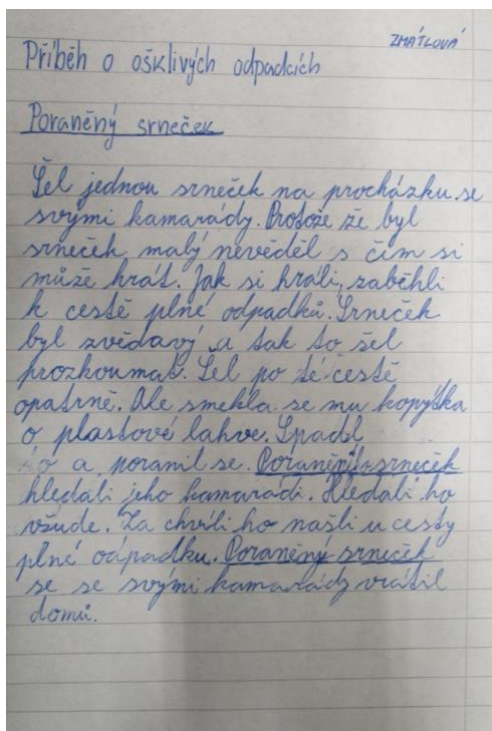 ZMÁTLOVÁ
Příběh o ošklivých odpadcích
Poraněný srneček
Šel jednou srneček na procházku se
svými kamarády. Protože že byl
srneček malý nevěděl s čím si
může hrát. Jak si hráli, zaběhli
k cestě plné odpadků. Srneček
byl zvědavý a tak to šel
prozkoumat. Šel po té cestě
opatrně. Ale smekla se mu kopýtka
o plastové lahve. Spadl
a poranil se. Poraněný srneček
hledali jeho kamarádi. Hledali ho
všude. Za chvíli ho našli u cesty
plné odpadku. Poraněný srneček
se se svými kamarády vrátil
domů.